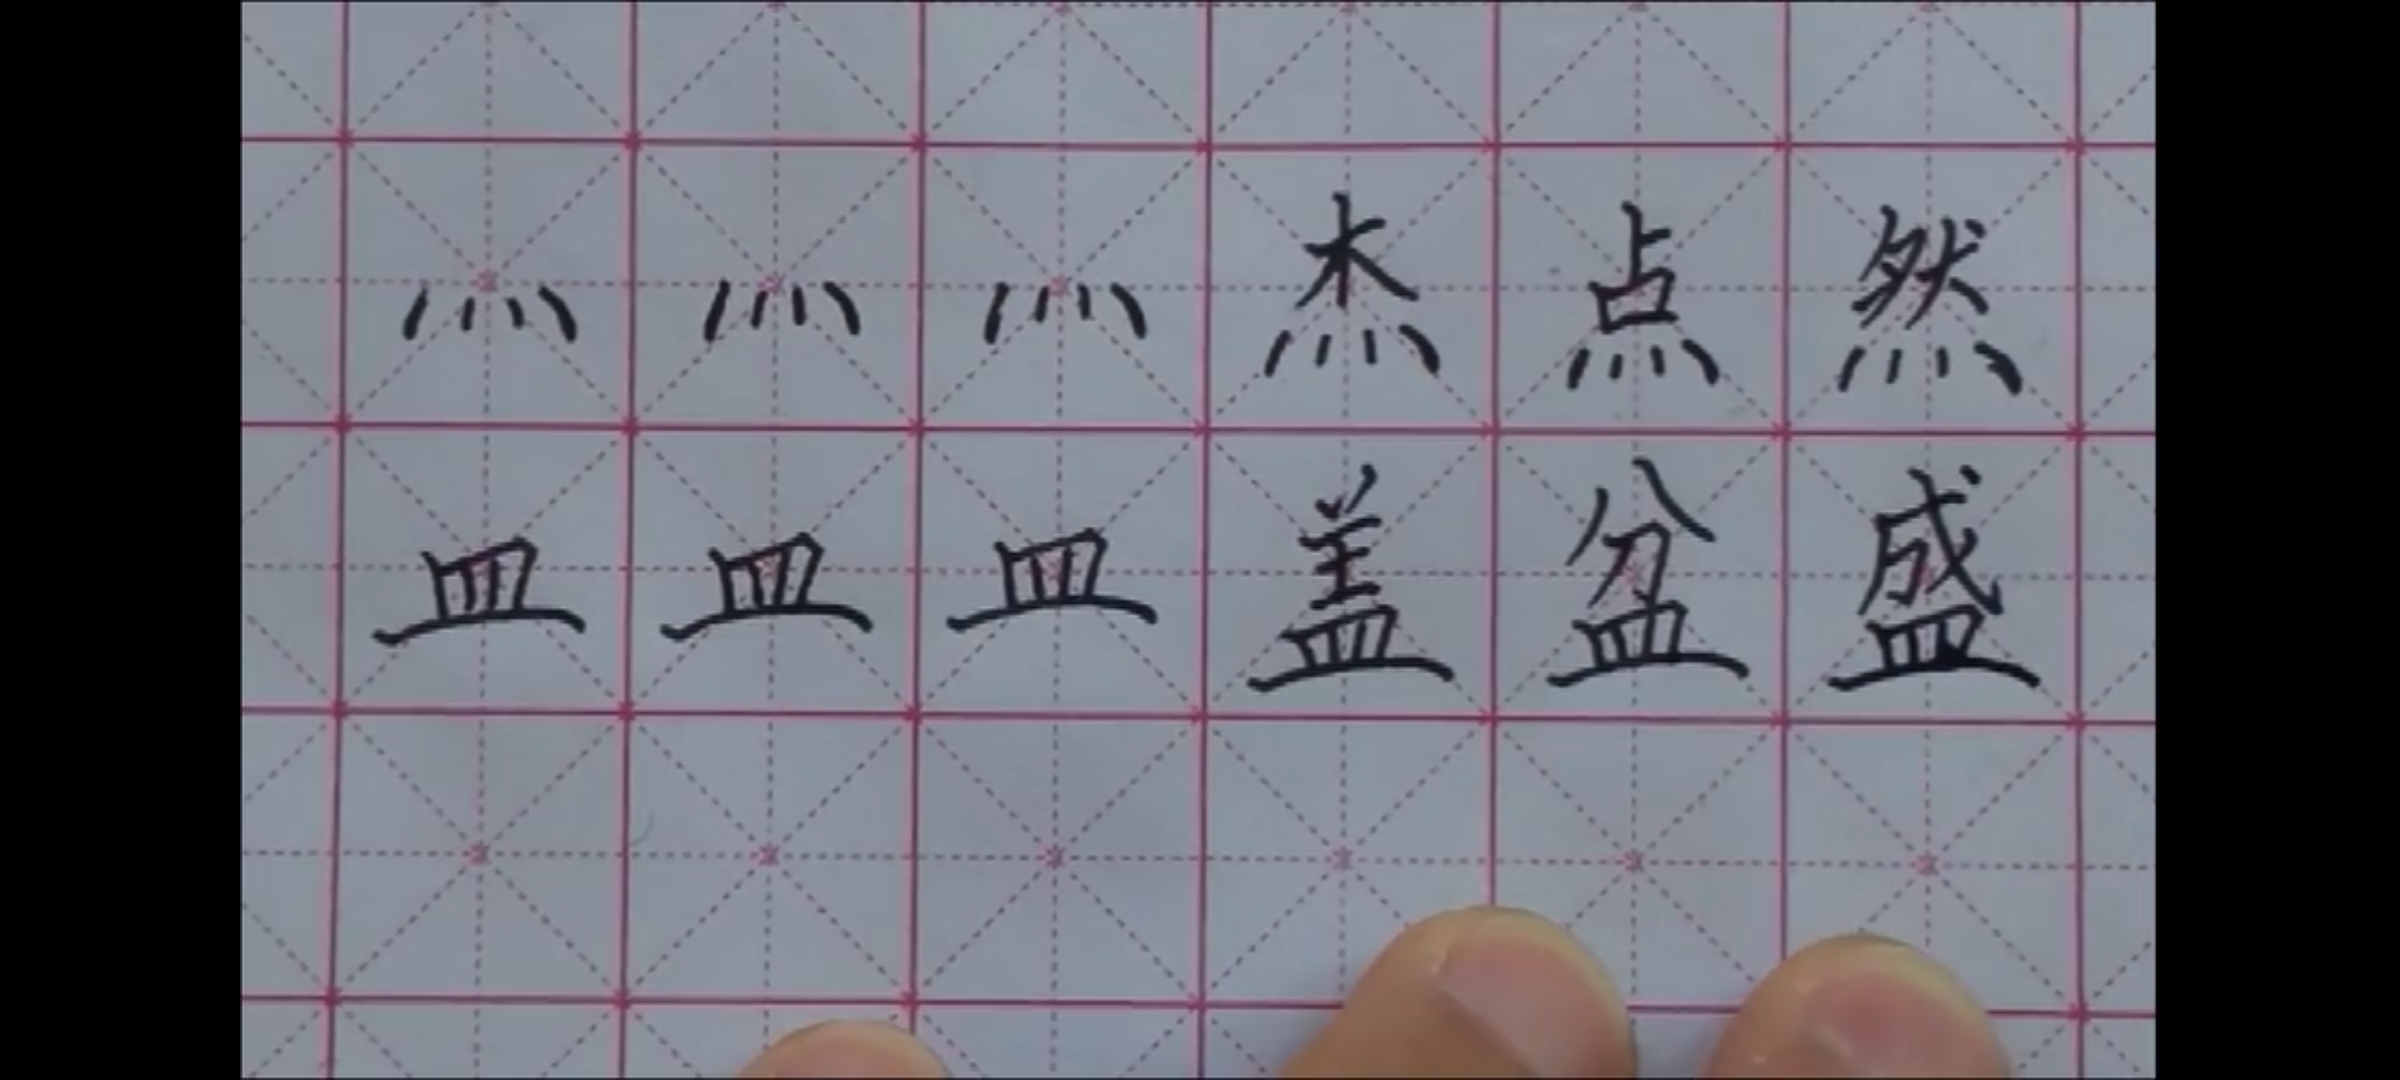 灬 灬 灬 杰 点 然
皿 皿 皿 盖 盆 盛